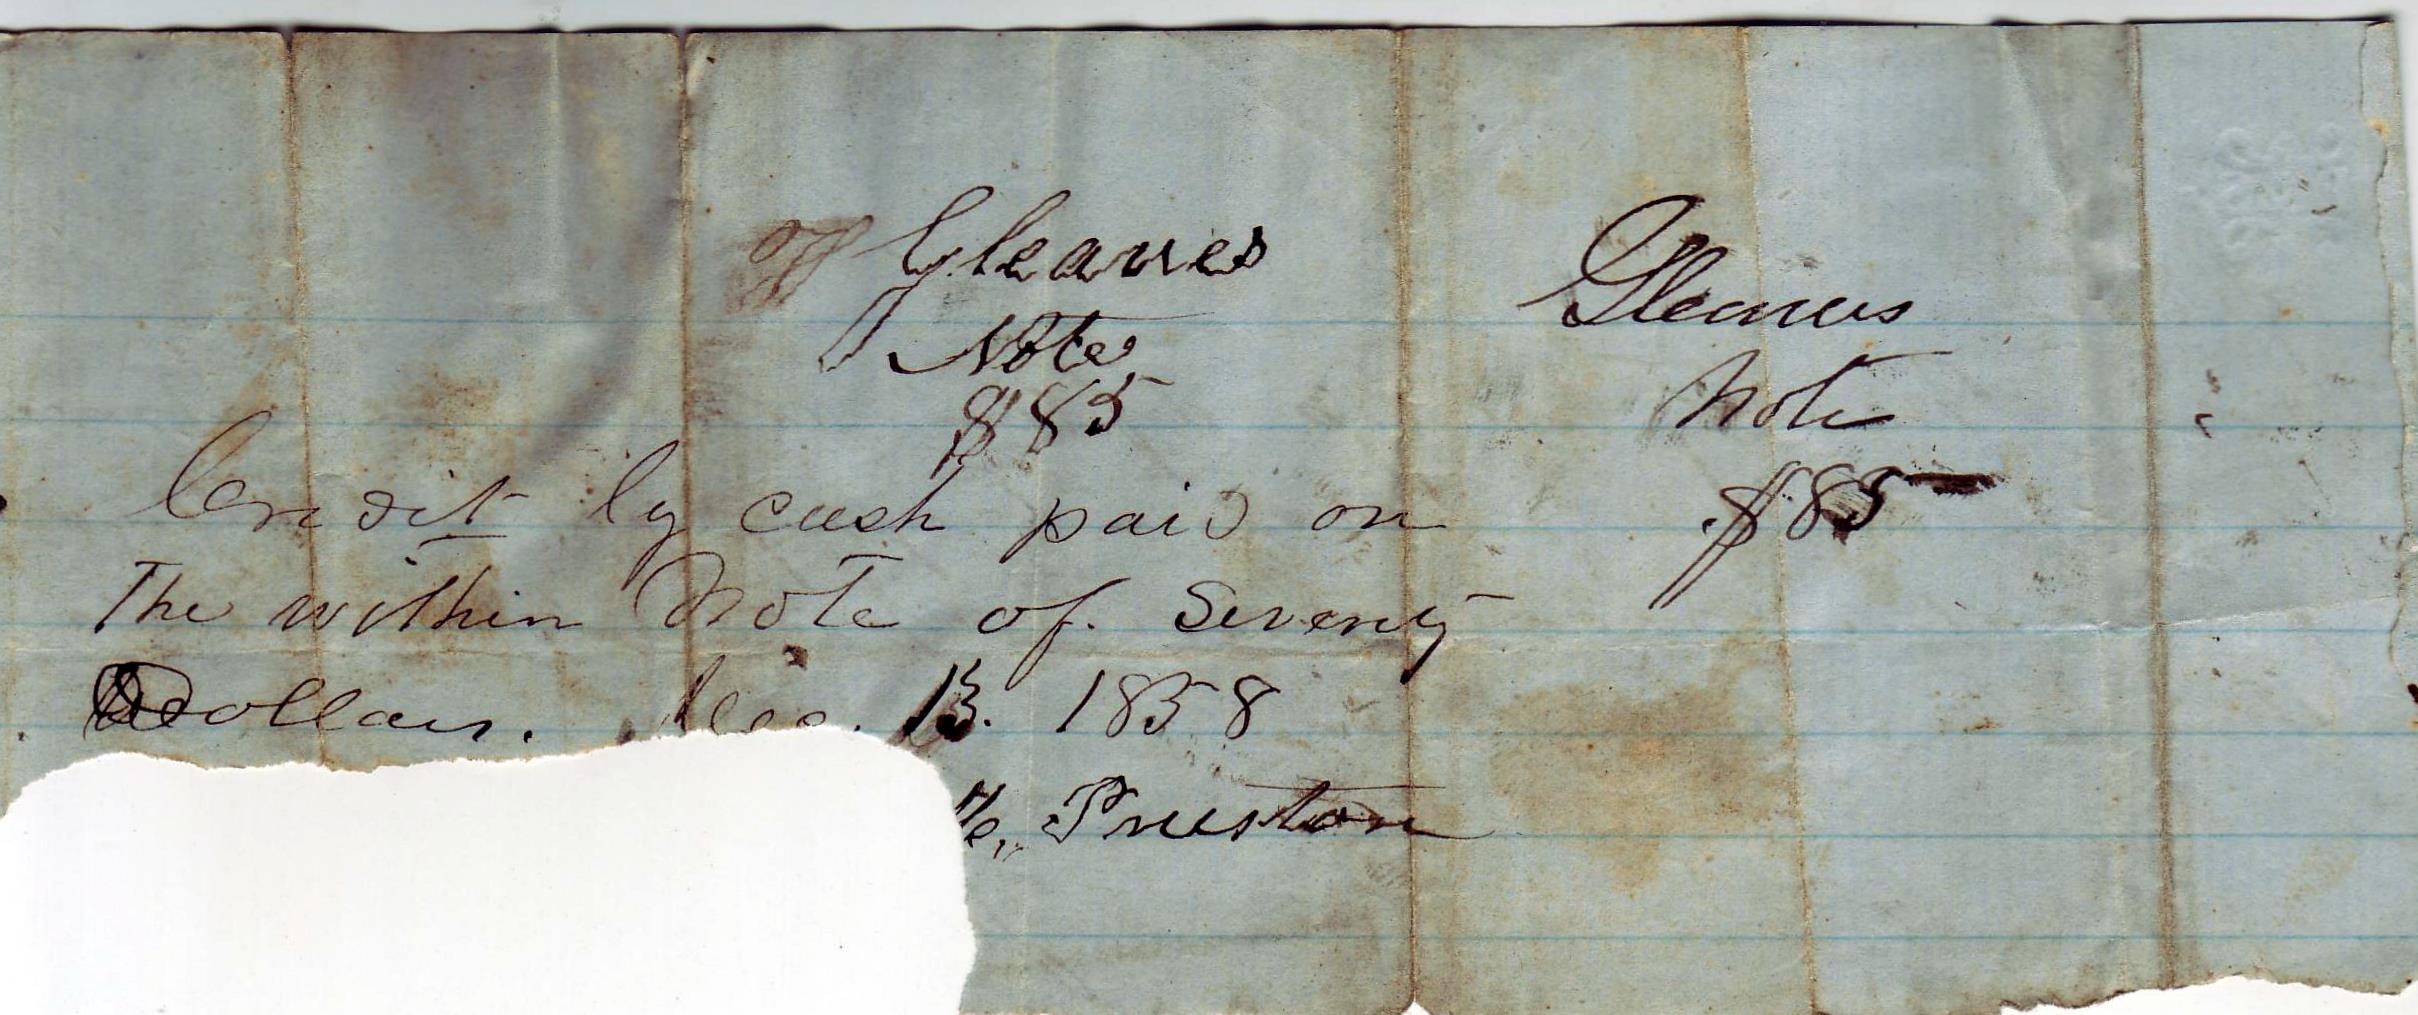 Gleaves
Note
$85
Credit by cash paid on
The within Note of Seventy
Dollars. Dec. 13. 1858
Preston
Gleaves
Note
$85